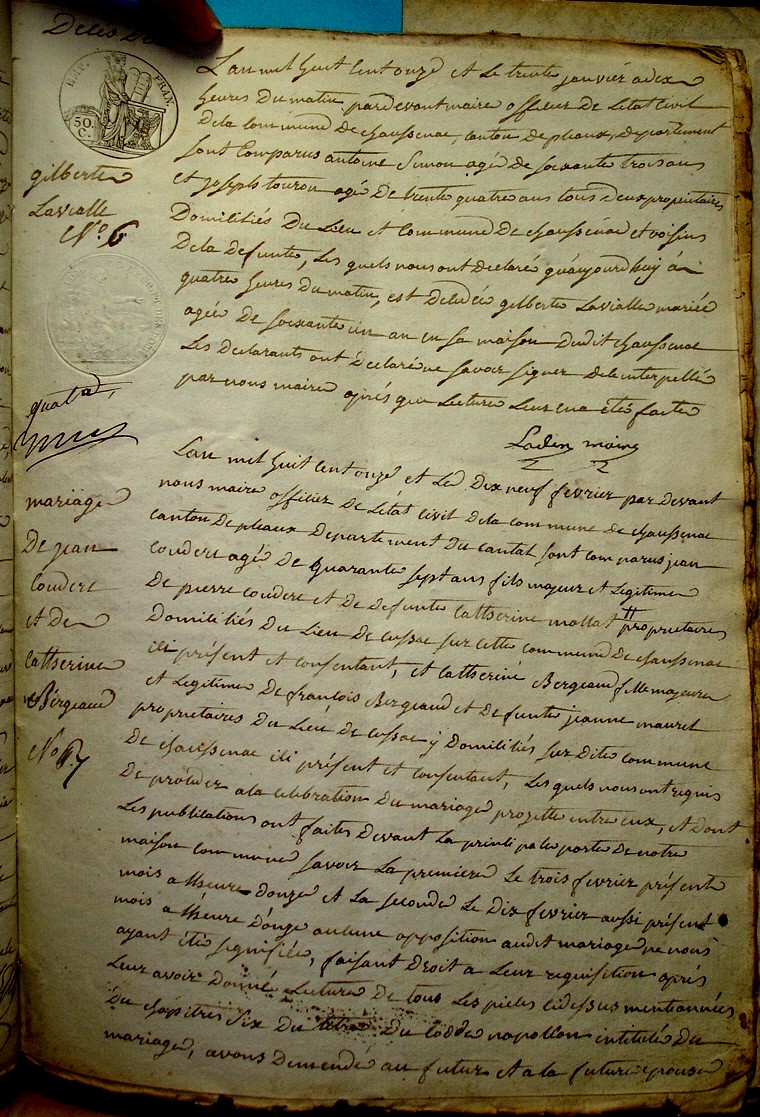 Décès De
EMP. FRAN.
50 C.
gilberte
Lavialle
N.º 6
L'an mil huit Cent onze et Le trente janvier a dix
heures Du matin pardevant maire officier De L'état Civil
De la Commune De chaussenac, canton De pleaux, Departement
sont Comparus antoine Simon agé De soixante trois ans
et joseph touron agé De trente quatre ans tous deux propriétaires
Domiciliés Du Lieu et Commune De chaussenac et voisins
De la Defunte, Les quels nous ont Declaré qu'aujourdhuy à
quatre heures Du matin, est Décédée gilberte Lavialle mariée
agée De soixante un an en sa maison Dudit chaussenac
Les Declarants ont Déclaré ne savoir signer De Ce interpellé
par nous maire après que Lecture Leur en a été faite
maire
mariage
De jean
Couderc
et De
Catherine
Bergeaud
N.º
L'an mil huit Cent onze et Le Dix neuf fevrier par Devant
nous maire officier De L'état Civil De la commune De chaussenac
canton De pleaux Departement Du cantal sont comparus jean
Couderc agé De quarante sept ans fils majeur et Legitime
De pierre Couderc et De Defunte Catherine mottat propriétaires
Domiciliés Du Lieu De Cussac sur cette commune De chaussenac
ici présent et consentant, et Catherine Bergeaud fille majeure
et Legitime De françois Bergeaud et De funte jeanne mauret
propriétaires Du Lieu De Cussac y Domiciliés sus Dite commune
De chaussenac ici présent et consentant, Les quels nous ont requis
De procéder a la celebration Du mariage projetté entre eux, et Dont
Les publications ont faites Devant La principale porte De notre
maison commune savoir La premiere Le trois fevrier présent
mois a L'heure Donze et La seconde Le Dix fevrier aussi présent
mois a L'heure D'onze aucune opposition audit mariage ne nous
ayant été signifiée, faisant Droit a Leur requisition après
Leur avoir Donné Lecture De tous Les pieces cidessus mentionnées
Du chapitre Six Du titre Du Codde napoleon intitulé Du
mariage, avons Demendé au futur et a la future epouse